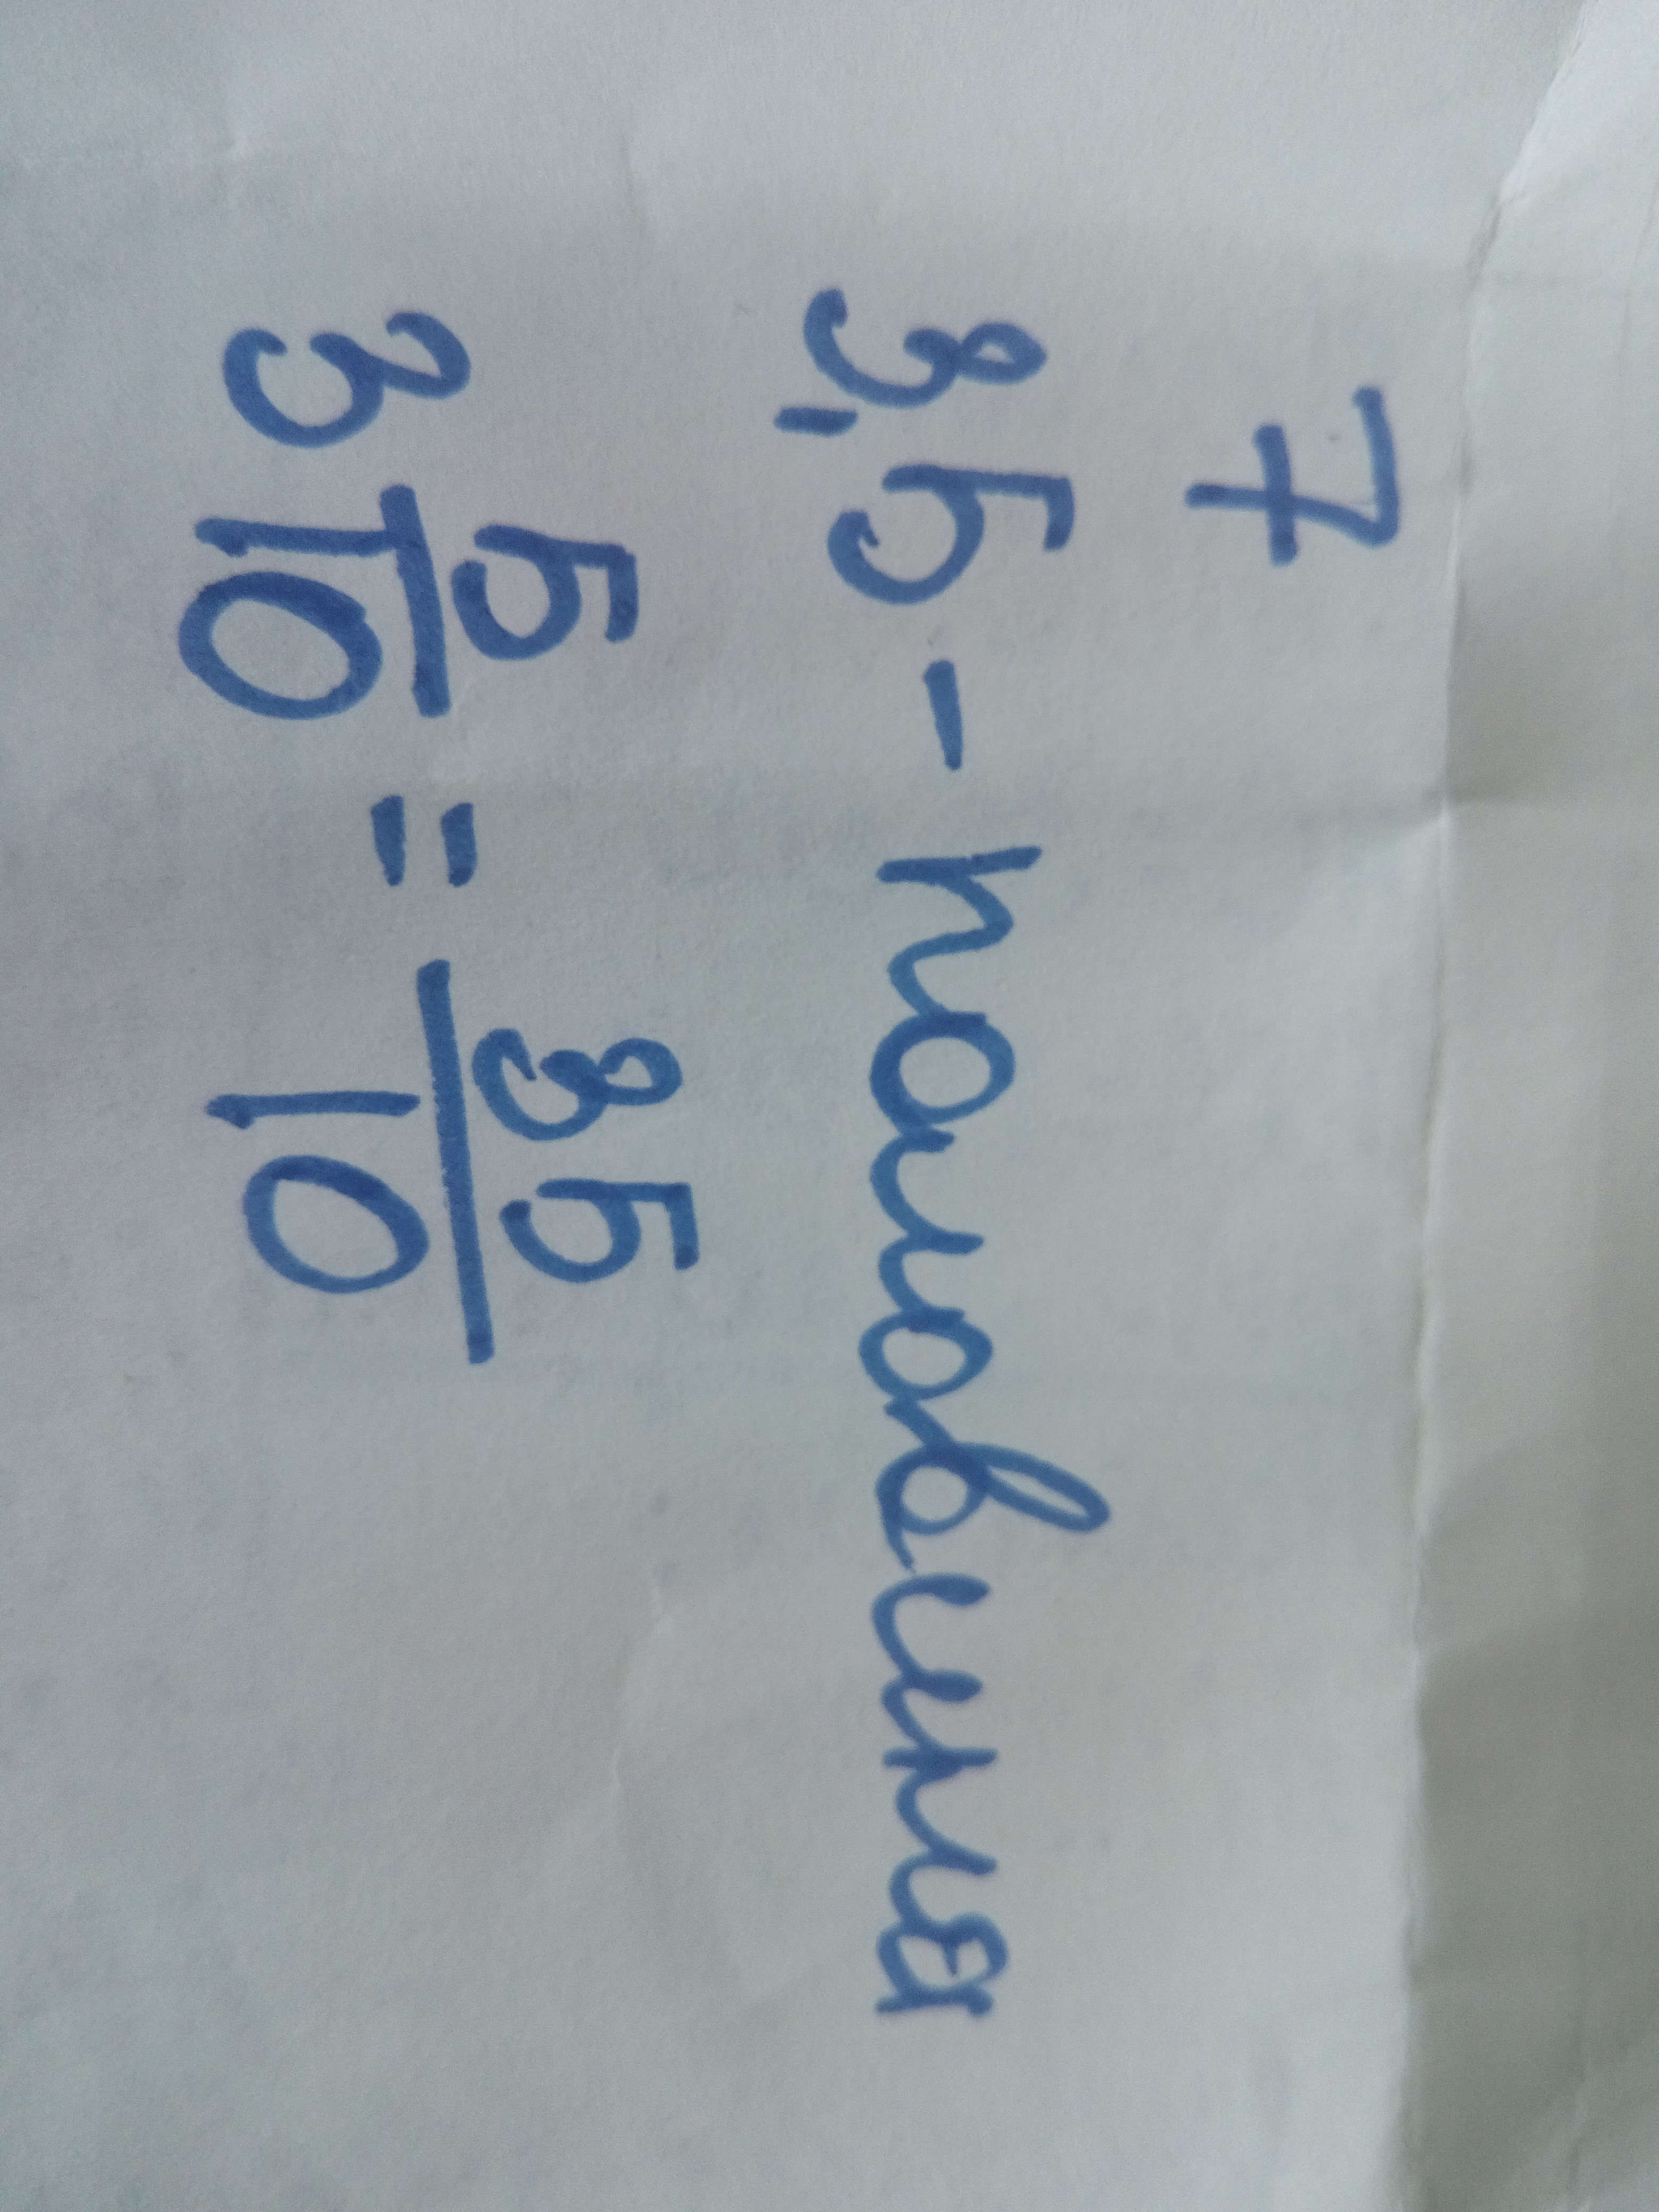 7
3,5 - половина
3 5/10 = 35/10